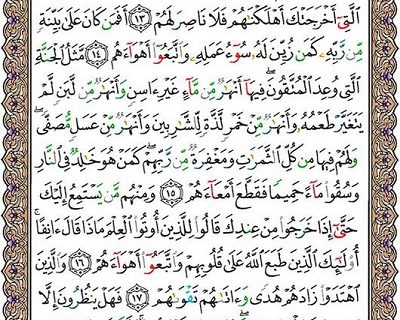 ٱلَّتِىٓ أَخْرَجَتْكَ أَهْلَكْنَـٰهُمْ فَلَا نَاصِرَ لَهُمْ ١٣ أَفَمَن كَانَ عَلَىٰ بَيِّنَةٍ
مِّن رَّبِّهِۦ كَمَن زُيِّنَ لَهُۥ سُوٓءُ عَمَلِهِۦ وَٱتَّبَعُوٓا۟ أَهْوَآءَهُم ١٤ مَّثَلُ ٱلْجَنَّةِ
ٱلَّتِى وُعِدَ ٱلْمُتَّقُونَ ۖ فِيهَآ أَنْهَـٰرٌ مِّن مَّآءٍ غَيْرِ ءَاسِنٍ وَأَنْهَـٰرٌ مِّن لَّبَنٍ لَّمْ
يَتَغَيَّرْ طَعْمُهُۥ وَأَنْهَـٰرٌ مِّنْ خَمْرٍ لَّذَّةٍ لِّلشَّـٰرِبِينَ وَأَنْهَـٰرٌ مِّنْ عَسَلٍ مُّصَفًّى ۖ
وَلَهُمْ فِيهَا مِن كُلِّ ٱلثَّمَرَٰتِ وَمَغْفِرَةٌ مِّن رَّبِّهِمْ ۖ كَمَنْ هُوَ خَـٰلِدٌ فِى ٱلنَّارِ
وَسُقُوا۟ مَآءً حَمِيمًا فَقَطَّعَ أَمْعَآءَهُمْ ١٥ وَمِنْهُم مَّن يَسْتَمِعُ إِلَيْكَ
حَتَّىٰٓ إِذَا خَرَجُوا۟ مِنْ عِندِكَ قَالُوا۟ لِلَّذِينَ أُوتُوا۟ ٱلْعِلْمَ مَاذَا قَالَ ءَانِفًا ۚ
أُو۟لَـٰٓئِكَ ٱلَّذِينَ طَبَعَ ٱللَّهُ عَلَىٰ قُلُوبِهِمْ وَٱتَّبَعُوٓا۟ أَهْوَآءَهُمْ ١٦ وَٱلَّذِينَ
ٱهْتَدَوْا۟ زَادَهُمْ هُدًى وَءَاتَىٰهُمْ تَقْوَىٰهُمْ ١٧ فَهَلْ يَنظُرُونَ إِلَّا